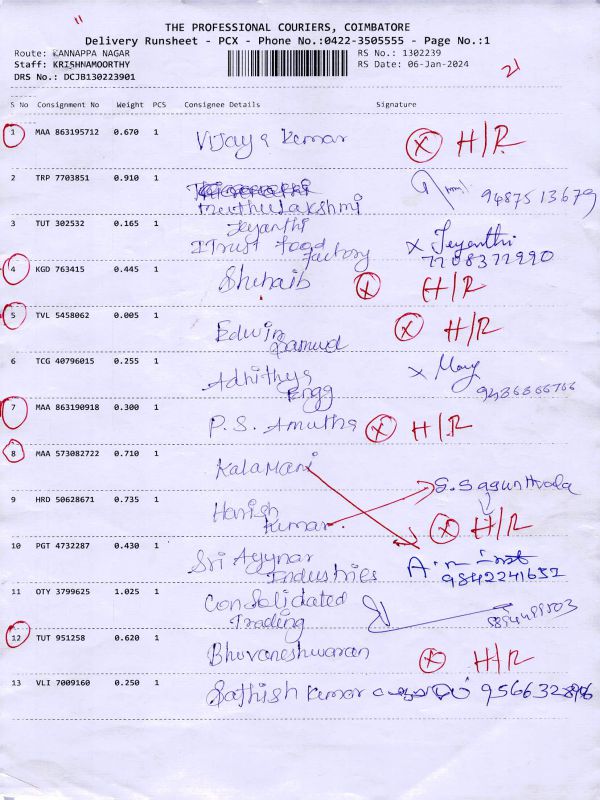 "
THE PROFESSIONAL COURIERS, COIMBATORE
Delivery Runsheet - PCX - Phone No.:0422-3505555 - Page No.:1
Route: KANNAPPA NAGAR RS No.: 1302239
Staff: KRISHNAMOORTHY RS Date: 06-Jan-2024
DRS No.: DCJB130223901 21
S No Consignment No Weight PCS Consignee Details Signature
1 MAA 863195712 0.670 1 Vijaya Kumar X H/R
2 TRP 7703851 0.910 1
Muthulakshmi 9487513679
3 TUT 302532 0.165 1 Jeyanthi
ITrust Food Factory X Jeyanthi
7708377990
4 KGD 763415 0.445 1 Shihaib X H/R
5 TVL 5458062 0.005 1 Edwin Samuel X H/R
6 TCG 40796015 0.255 1 Adhithya Engg X
7 MAA 863190918 0.300 1 P.S. Amutha X H/R
8 MAA 573082722 0.710 1 Kalamani
9 HRD 50628671 0.735 1 Harish Kumar X H/R
10 PGT 4732287 0.430 1 Sri Ayynar Industries
9842241652
11 OTY 3799625 1.025 1 Consolidated Trading
12 TUT 951258 0.620 1 Bhuvaneshwaran X H/R
13 VLI 7009160 0.250 1 Sathish Kumar